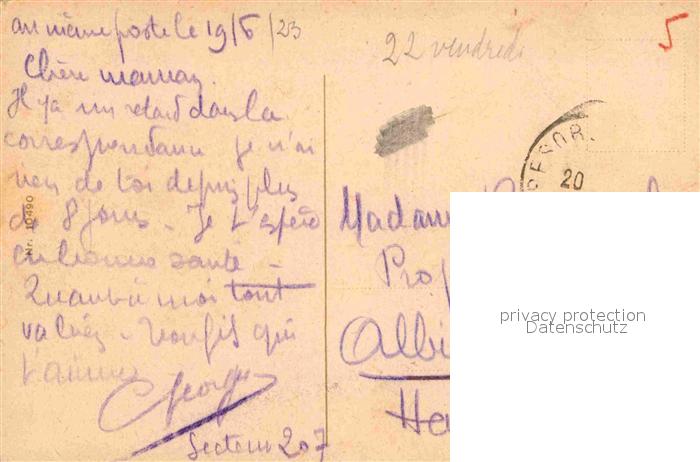 au même poste le 19/6/23
Chère maman.
Il y a un retard dans la
correspondance je n'ai
rien de toi depuis plus
de 8 jours - Je t'espère
en bonne santé -
Quant à moi tout
va bien - Ton fils qui
t'aime
Georges
Secteur 207
Nr. 10490
22 vendredi
5
20
Madame
Prop
Albi
He
privacy protection
Datenschutz